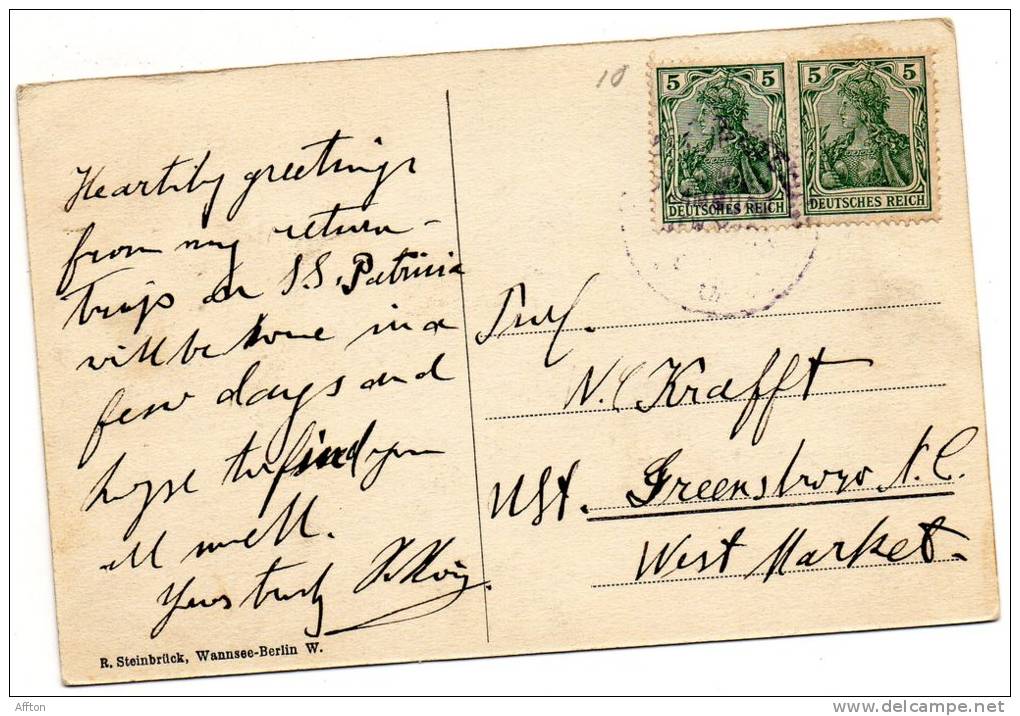 10
5 5 5 5
DEUTSCHES REICH DEUTSCHES REICH
Heartily greetings
from my return-
trip on S.S. Patricia
will be home in a
few days and
hope to find you
all well.
Yours truly
R. Steinbrück, Wannsee-Berlin W.
N. C. Krafft
Greensboro N.C.
West Market.
Affton
http://www.delcampe.net